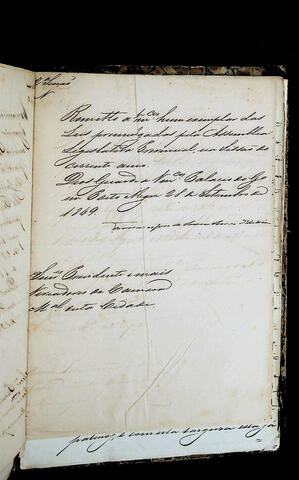 2ª Secção
N
Remetto a Vm.ces hum exemplar das
Leis promulgadas pela Assemblea
Legislativa Provincial, na Sessão do
corrente anno.
Deos Guarde a Vm.ces Palacio do Go
em Porto Alegre 28 de Setembro de
1849.
Senr.es Presidente e mais
Vereadores da Camara
M.al desta Cidade.
e com esta largura